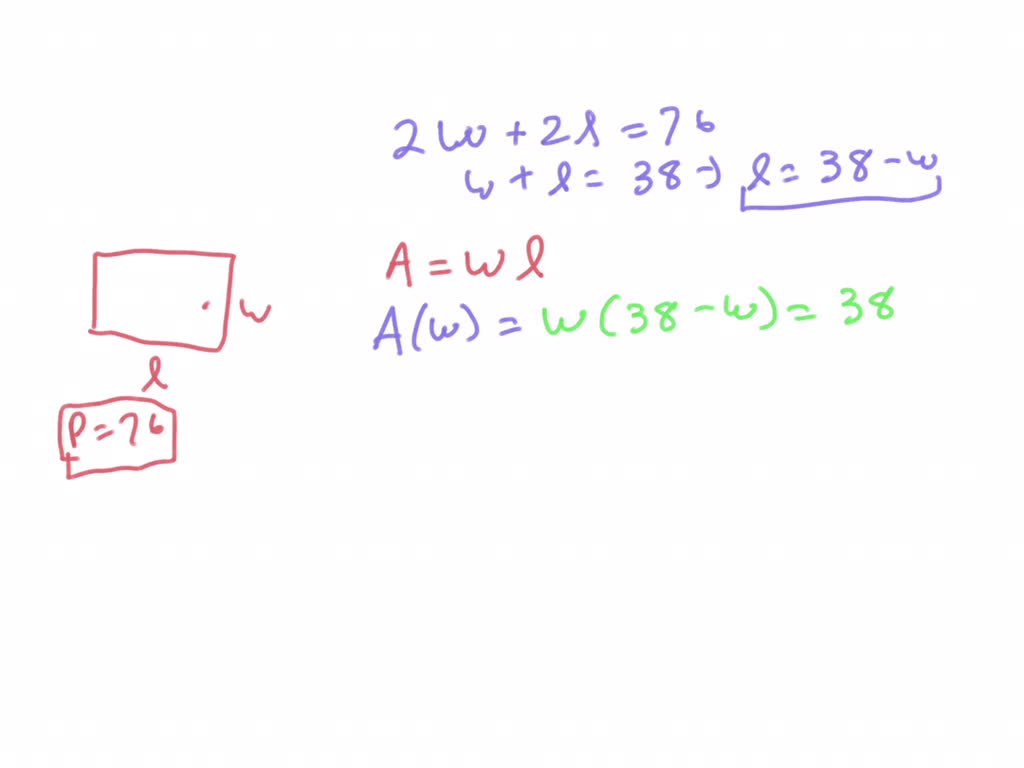 2w + 2l = 76
w + l = 38 → l = 38 - w
A = w l
A(w) = w(38 - w) = 38
w
l
P = 76